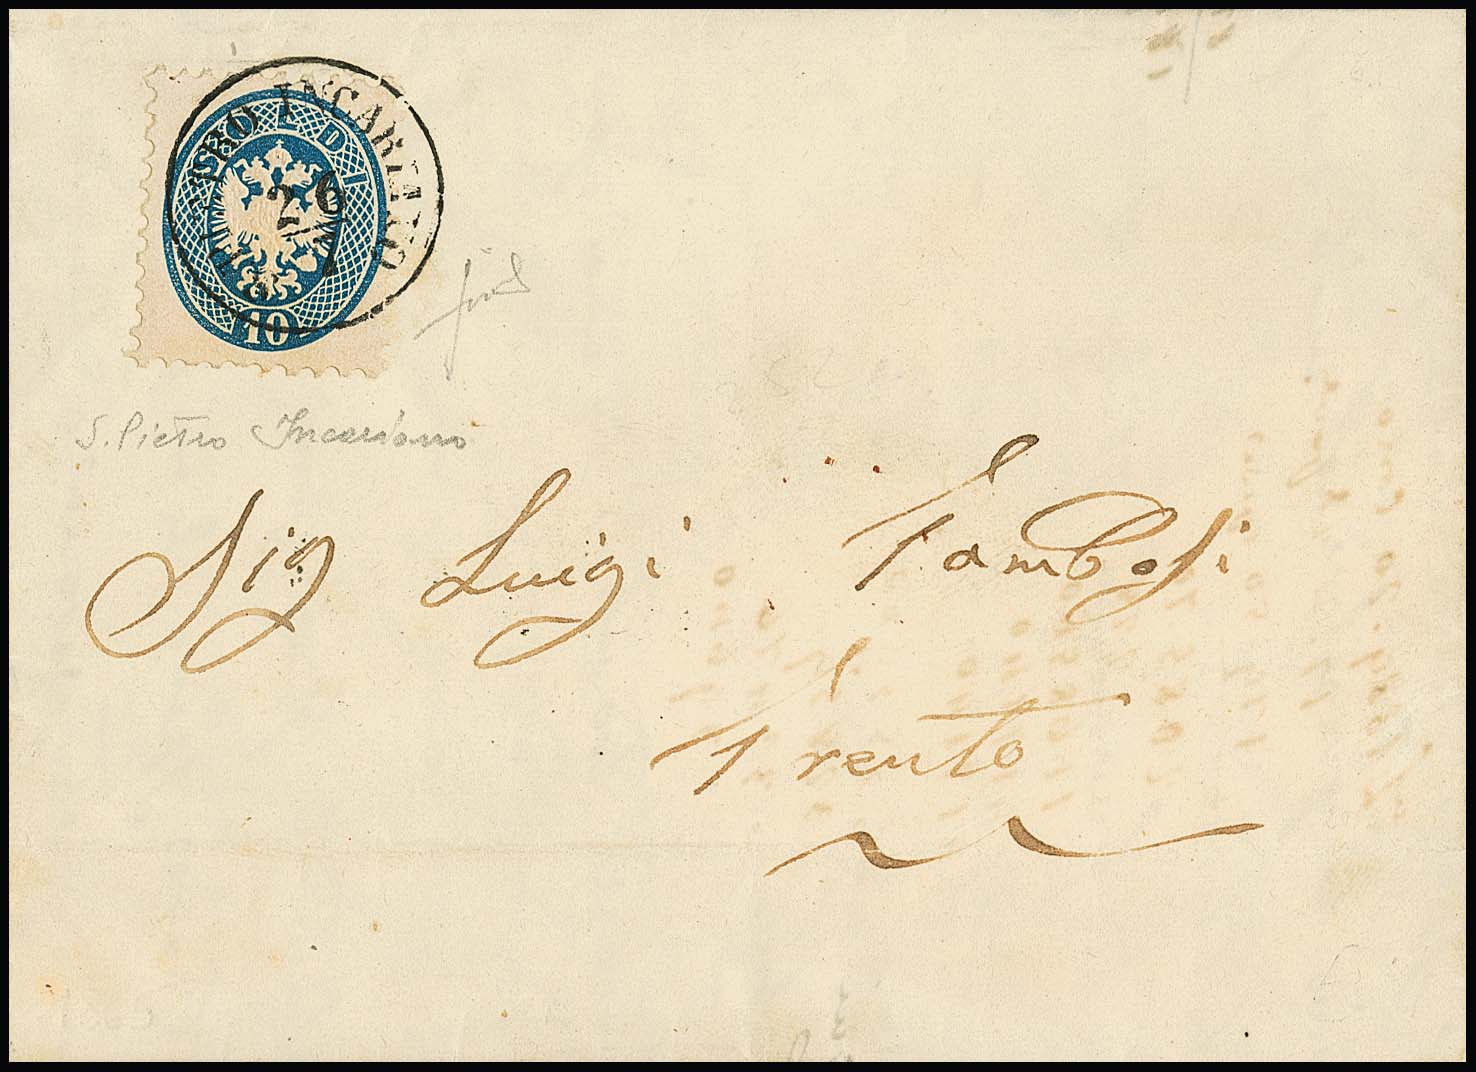 S. PIETRO INCARIANO
26
7
SOLDI
10
S. Pietro Incariano
Sig Luigi Tambosi
Trento